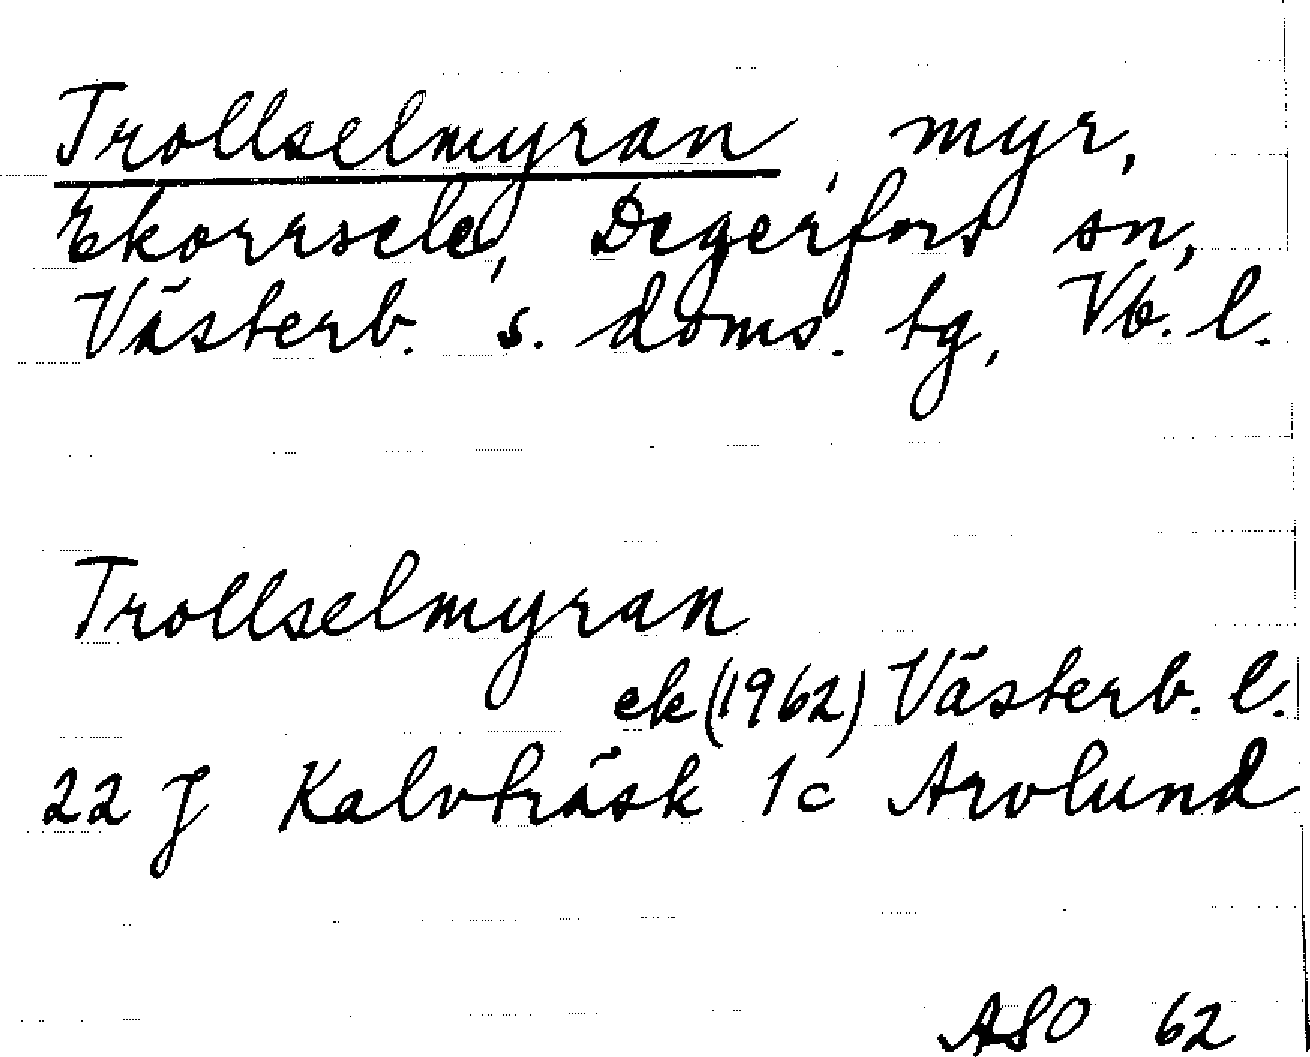 Trollselmyran, myr,
Ekorrsele, Degerfors sn,
Västerb. s. doms. tg, Vb. l.
Trollselmyran
ek (1962) Västerb. l.
22 J Kalvträsk 1c Arvlund
ASO 62